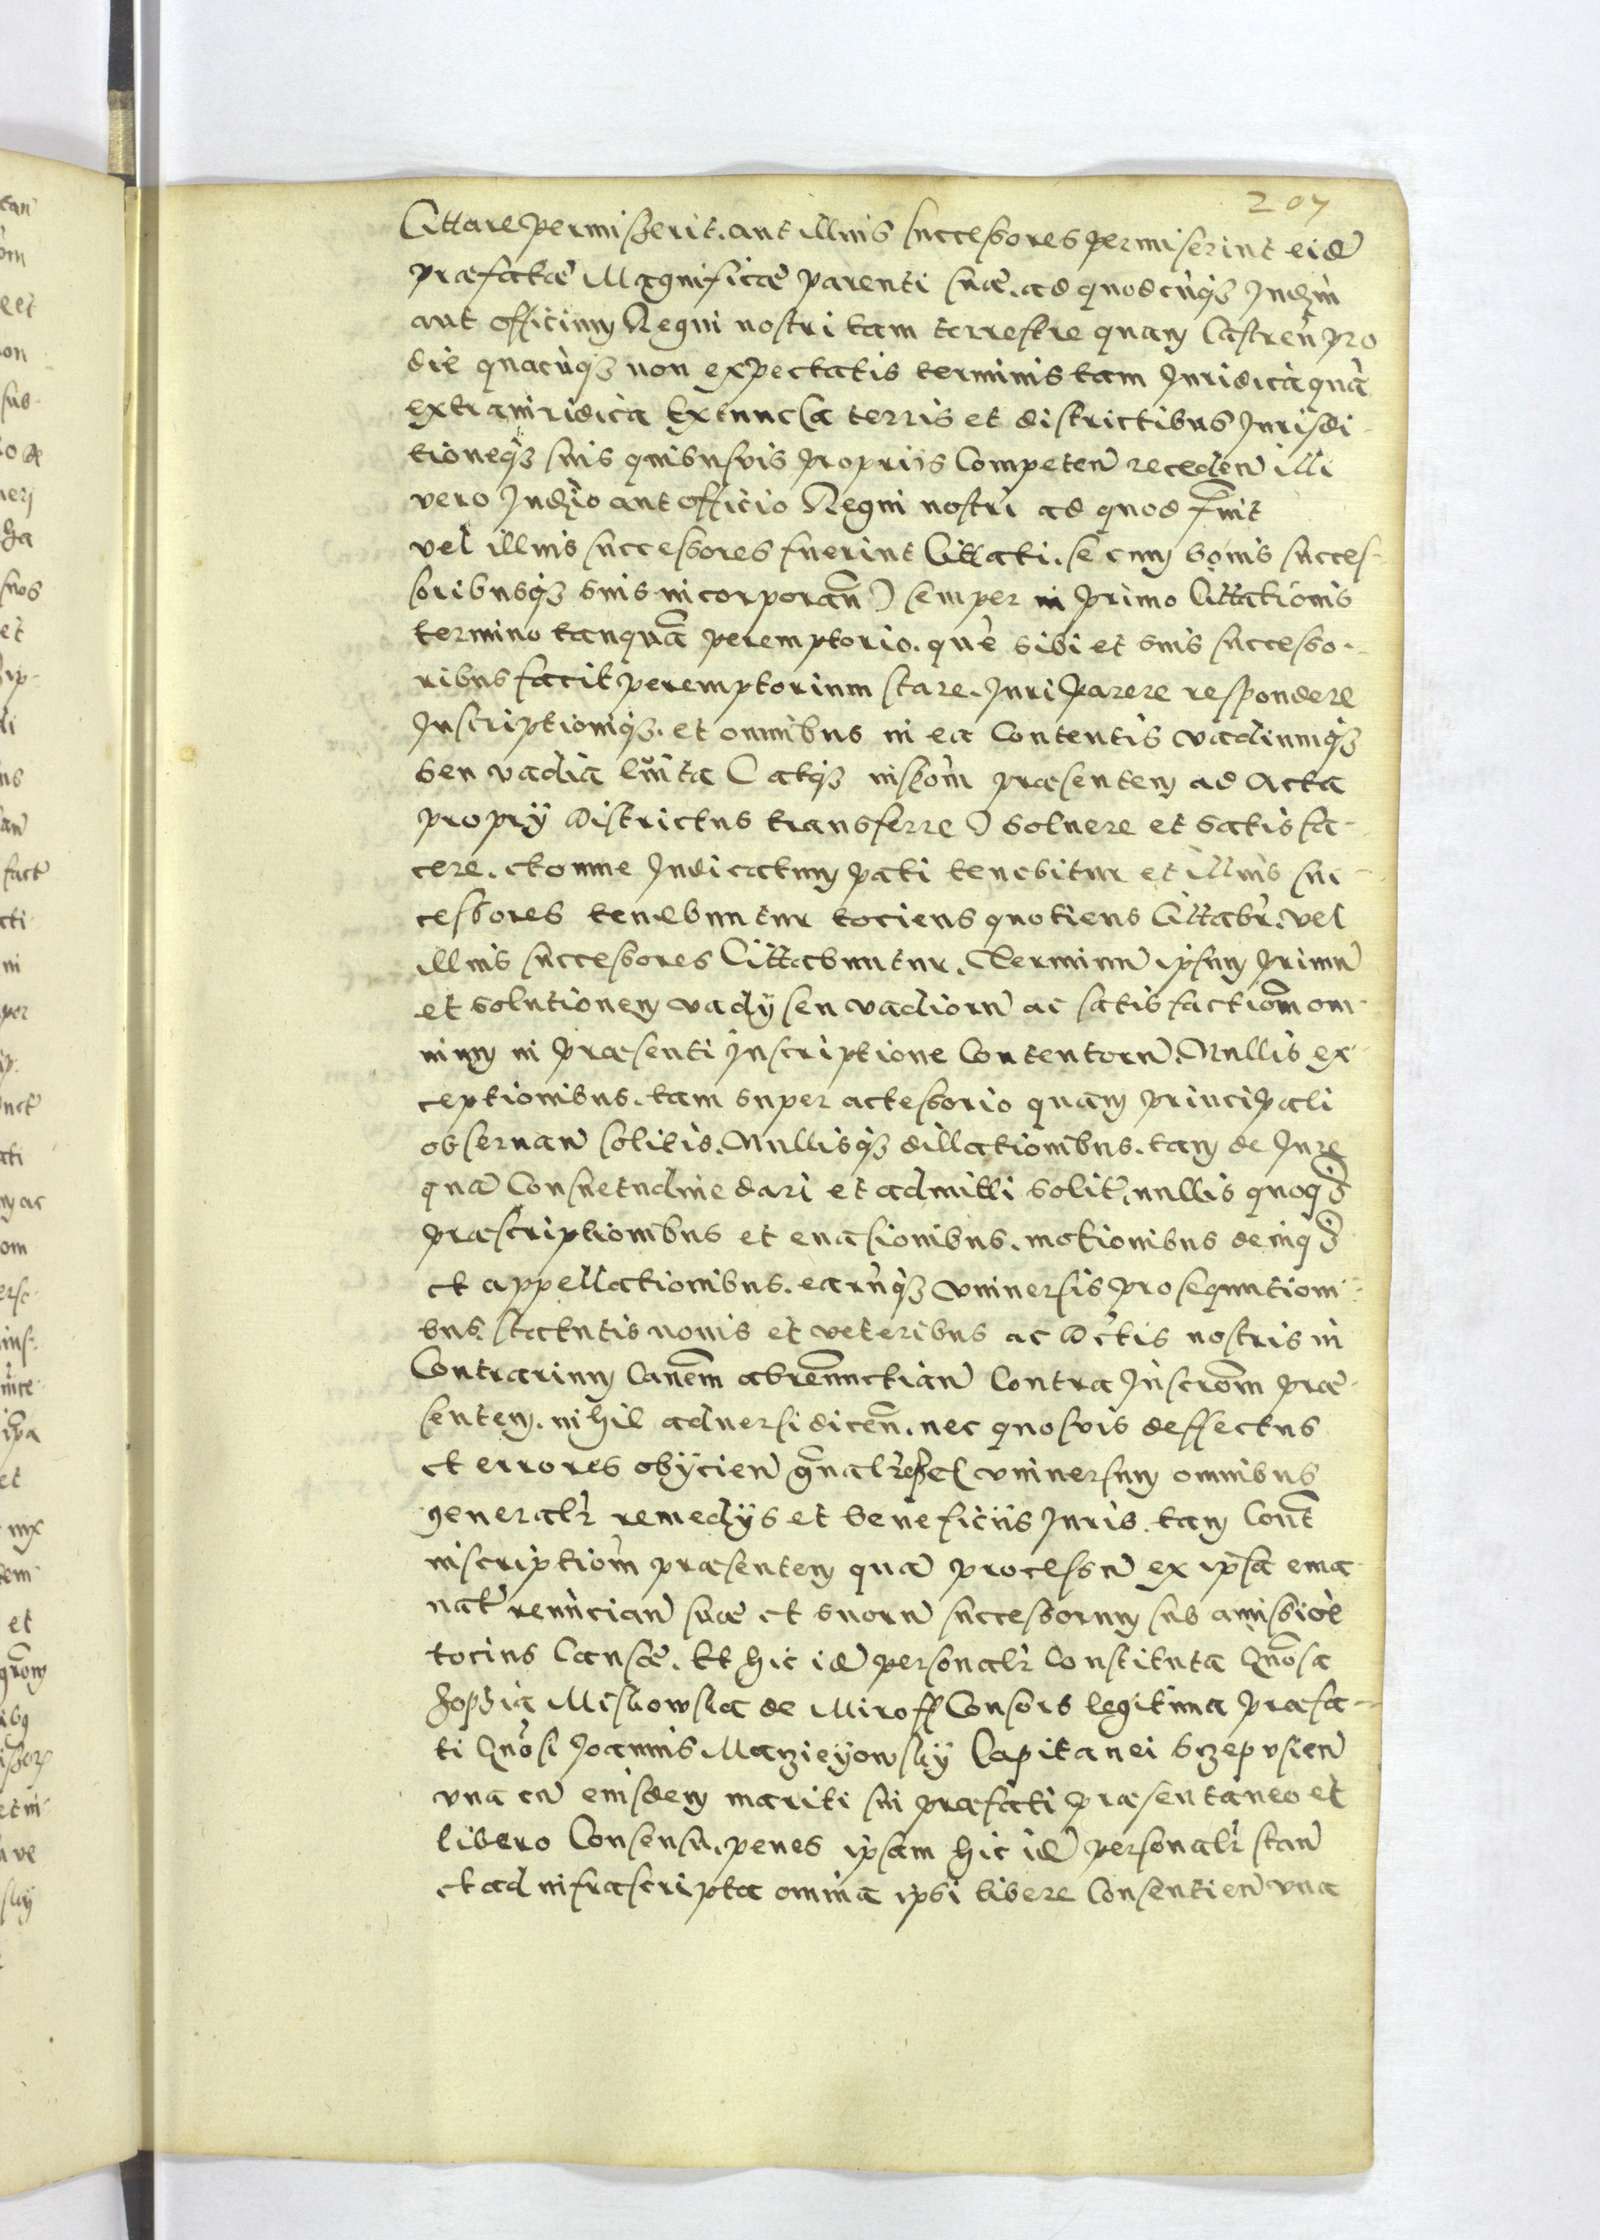 207
Cittare permiserit. aut illius successores permiserint eidē
præfatæ Magnificæ parenti suæ. ad quodcūq₃ Judiũ
aut officium Regni nostri tam terrestre quam Castreñ pro
die quacūq₃ non expectatis terminis tam Juridica quā
extraiuridica Extunc (a terris et districtibus Jurisdi-
tioneq₃ suis quibusvis proprijs Competeñ recedeñ illi
vero Judicio aut officio Regni nostri ad quod fuit
vel illius successores fuerint Cittati. se cum bonis succes-
soribusq₃ suis incorporañ) semper in primo Cittationis
termino tanquā peremptorio. quē sibi et suis successo-
ribus facit peremptorium stare. Juri parere respondere
Inscriptioniq₃. et omnibus in ea Contentis vadiumq₃
seu vadia luīta (atq₃ inscrom̄ præsentem ad Acta
proprij districtus transferre) soluere et satisfa-
cere. et omne Judicatum pati tenebitur et illius suc-
cessores tenebuntur tociens quotiens Cittabr̄. vel
illius successores Cittabuntur. Terminū ipsum primū
et solutionem vadij seu vadiorū ac satisfactiom̄ om-
nium in præsenti Inscriptione Contentorū. Nullis ex-
ceptionibus. tam super accessorio quam principali
obseruañ solitis. Nullisq₃ dillationibus. tam de Jure
quā Consuetudine dari et admitti solit̄. nullis quoq₃
præscriptionibus et euasionibus. motionibus deniq₃
et appellationibus. earūq₃ vniuersis prosequutioni-
bus. statutis nouis et veteribus ac Actis nostris in
Contrarium Cauem̄ abrenunctiañ Contra Inscrom̄ præ-
sentem. nihil aduersi diceñ. nec quosvis deffectus
et errores obijcieñ gñalr̄ vniuersum omnibus
generalr̄ remedijs et beneficijs Juris. tam Cont̄
inscriptiom̄ præsentem quā processū ex ipsa ema-
nat̄ renūciañ suæ et suorū successorum sub amissioē
tocius Causæ. Et hic idē personalr̄ Constituta Gñosa
Zophia Miskowska de Miroff Consors legitima præfa-
ti Gñosi Joannis Maczieyowskÿ Capitanei Sczepusieñ
vna cū eiusdem mariti sui præfati præsentaneo et
libero Consensu. penes ipsam hic idē personalr̄ stañ
et ad infrascripta omnia ipsi libere Consentieñ vna